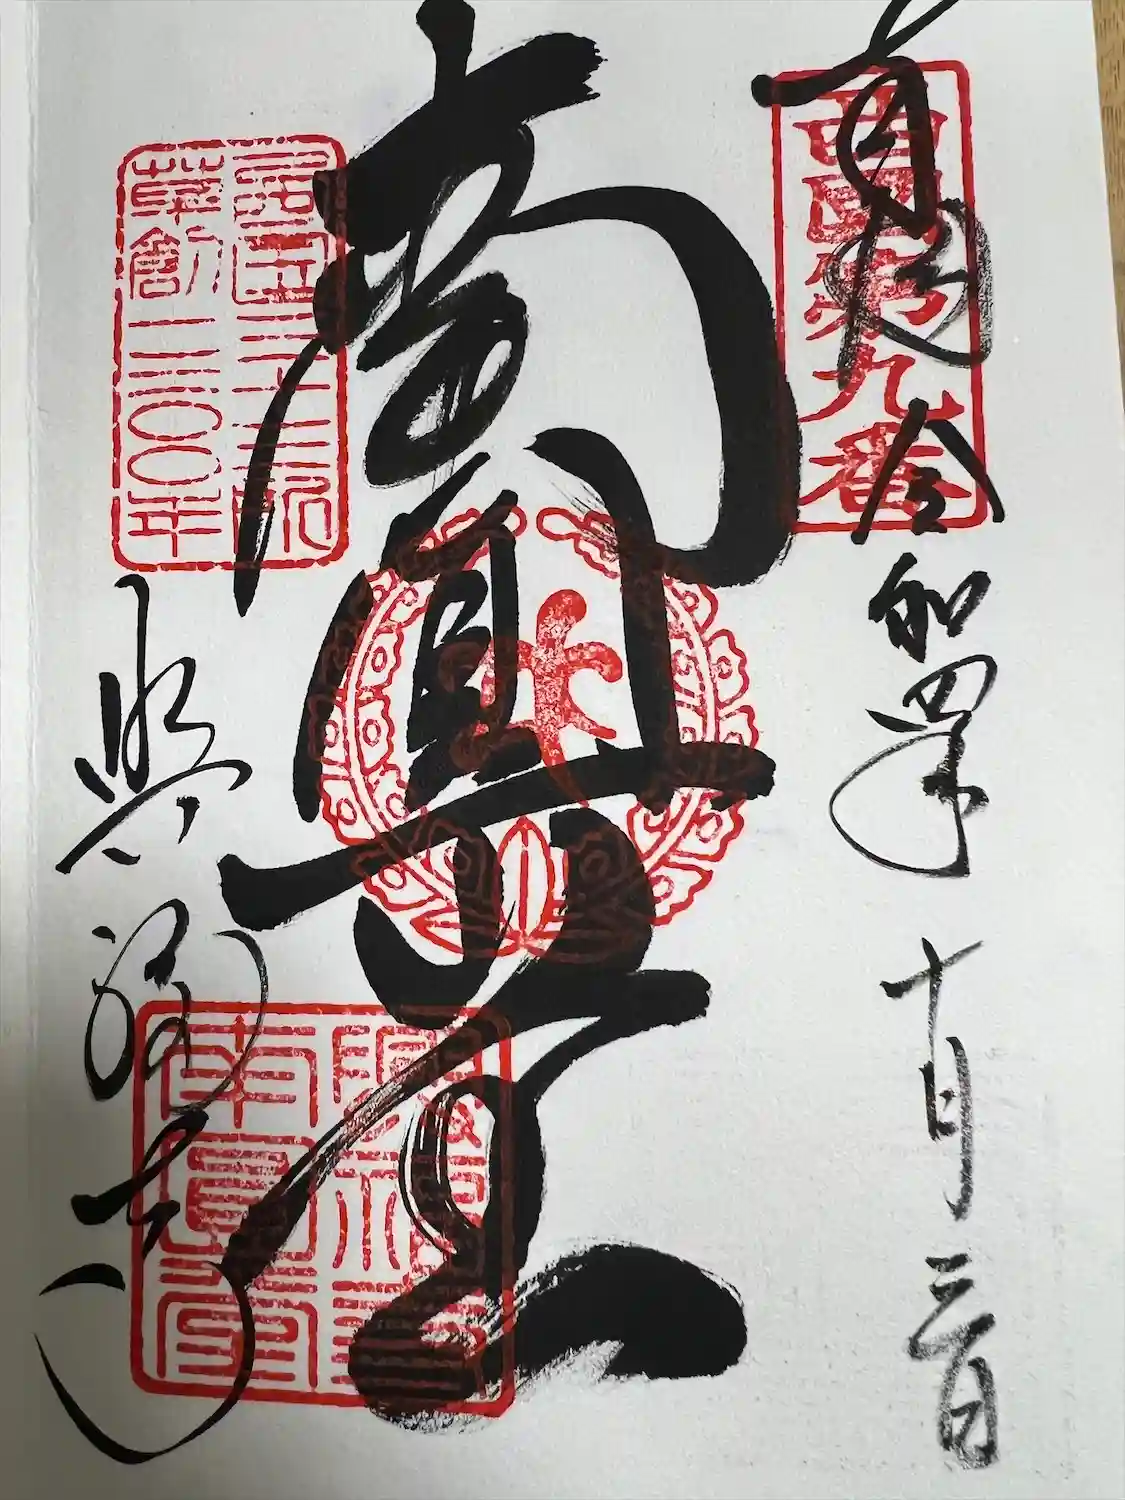 奉拝
令和四年 十月 三日
西國第九番
南圓堂
西国三十三所
草創一三〇〇年
興福寺
興福寺
南圓堂